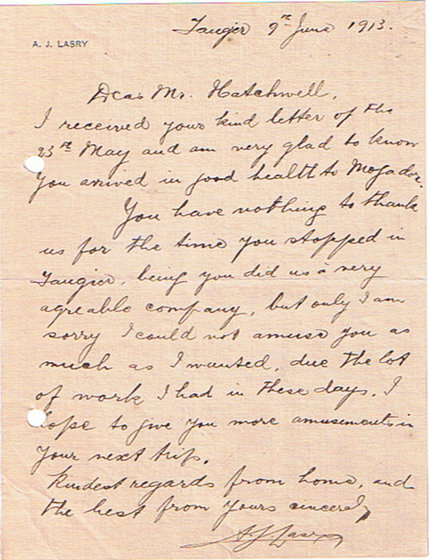 Tangier 9th June 1913.
A. J. LASRY
Dear Mr. Hatchwell,
I received your kind letter of the
23rd May and am very glad to know
you arrived in good health to Mogador.
You have nothing to thank
us for the time you stopped in
Tangier, being you did us a very
agreable company, but only I am
sorry I could not amuse you as
much as I wanted, due the lot
of work I had in these days. I
hope to give you more amusements in
your next trip.
Kindest regards from home, and
the best from yours sincerely
A J Lasry